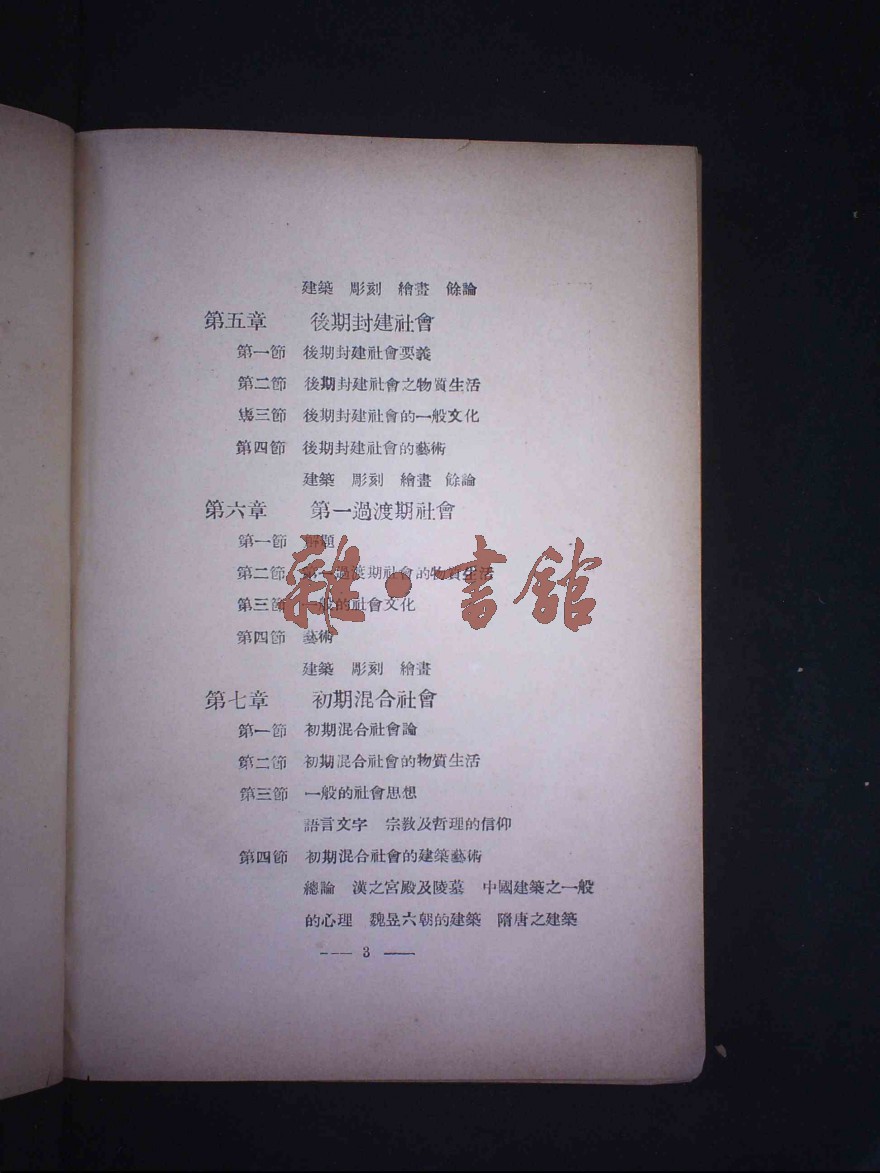 建築　彫刻　繪畫　餘論
第五章　後期封建社會
第一節　後期封建社會要義
第二節　後期封建社會之物質生活
第三節　後期封建社會的一般文化
第四節　後期封建社會的藝術
建築　彫刻　繪畫　餘論
第六章　第一過渡期社會
第一節　解題
第二節　第一過渡期社會的物質生活
第三節　一般的社會文化
第四節　藝術
建築　彫刻　繪畫
第七章　初期混合社會
第一節　初期混合社會論
第二節　初期混合社會的物質生活
第三節　一般的社會思想
語言文字　宗教及哲理的信仰
第四節　初期混合社會的建築藝術
總論　漢之宮殿及陵墓　中國建築之一般
的心理　魏晉六朝的建築　隋唐之建築
—— 3 ——
雜·書館